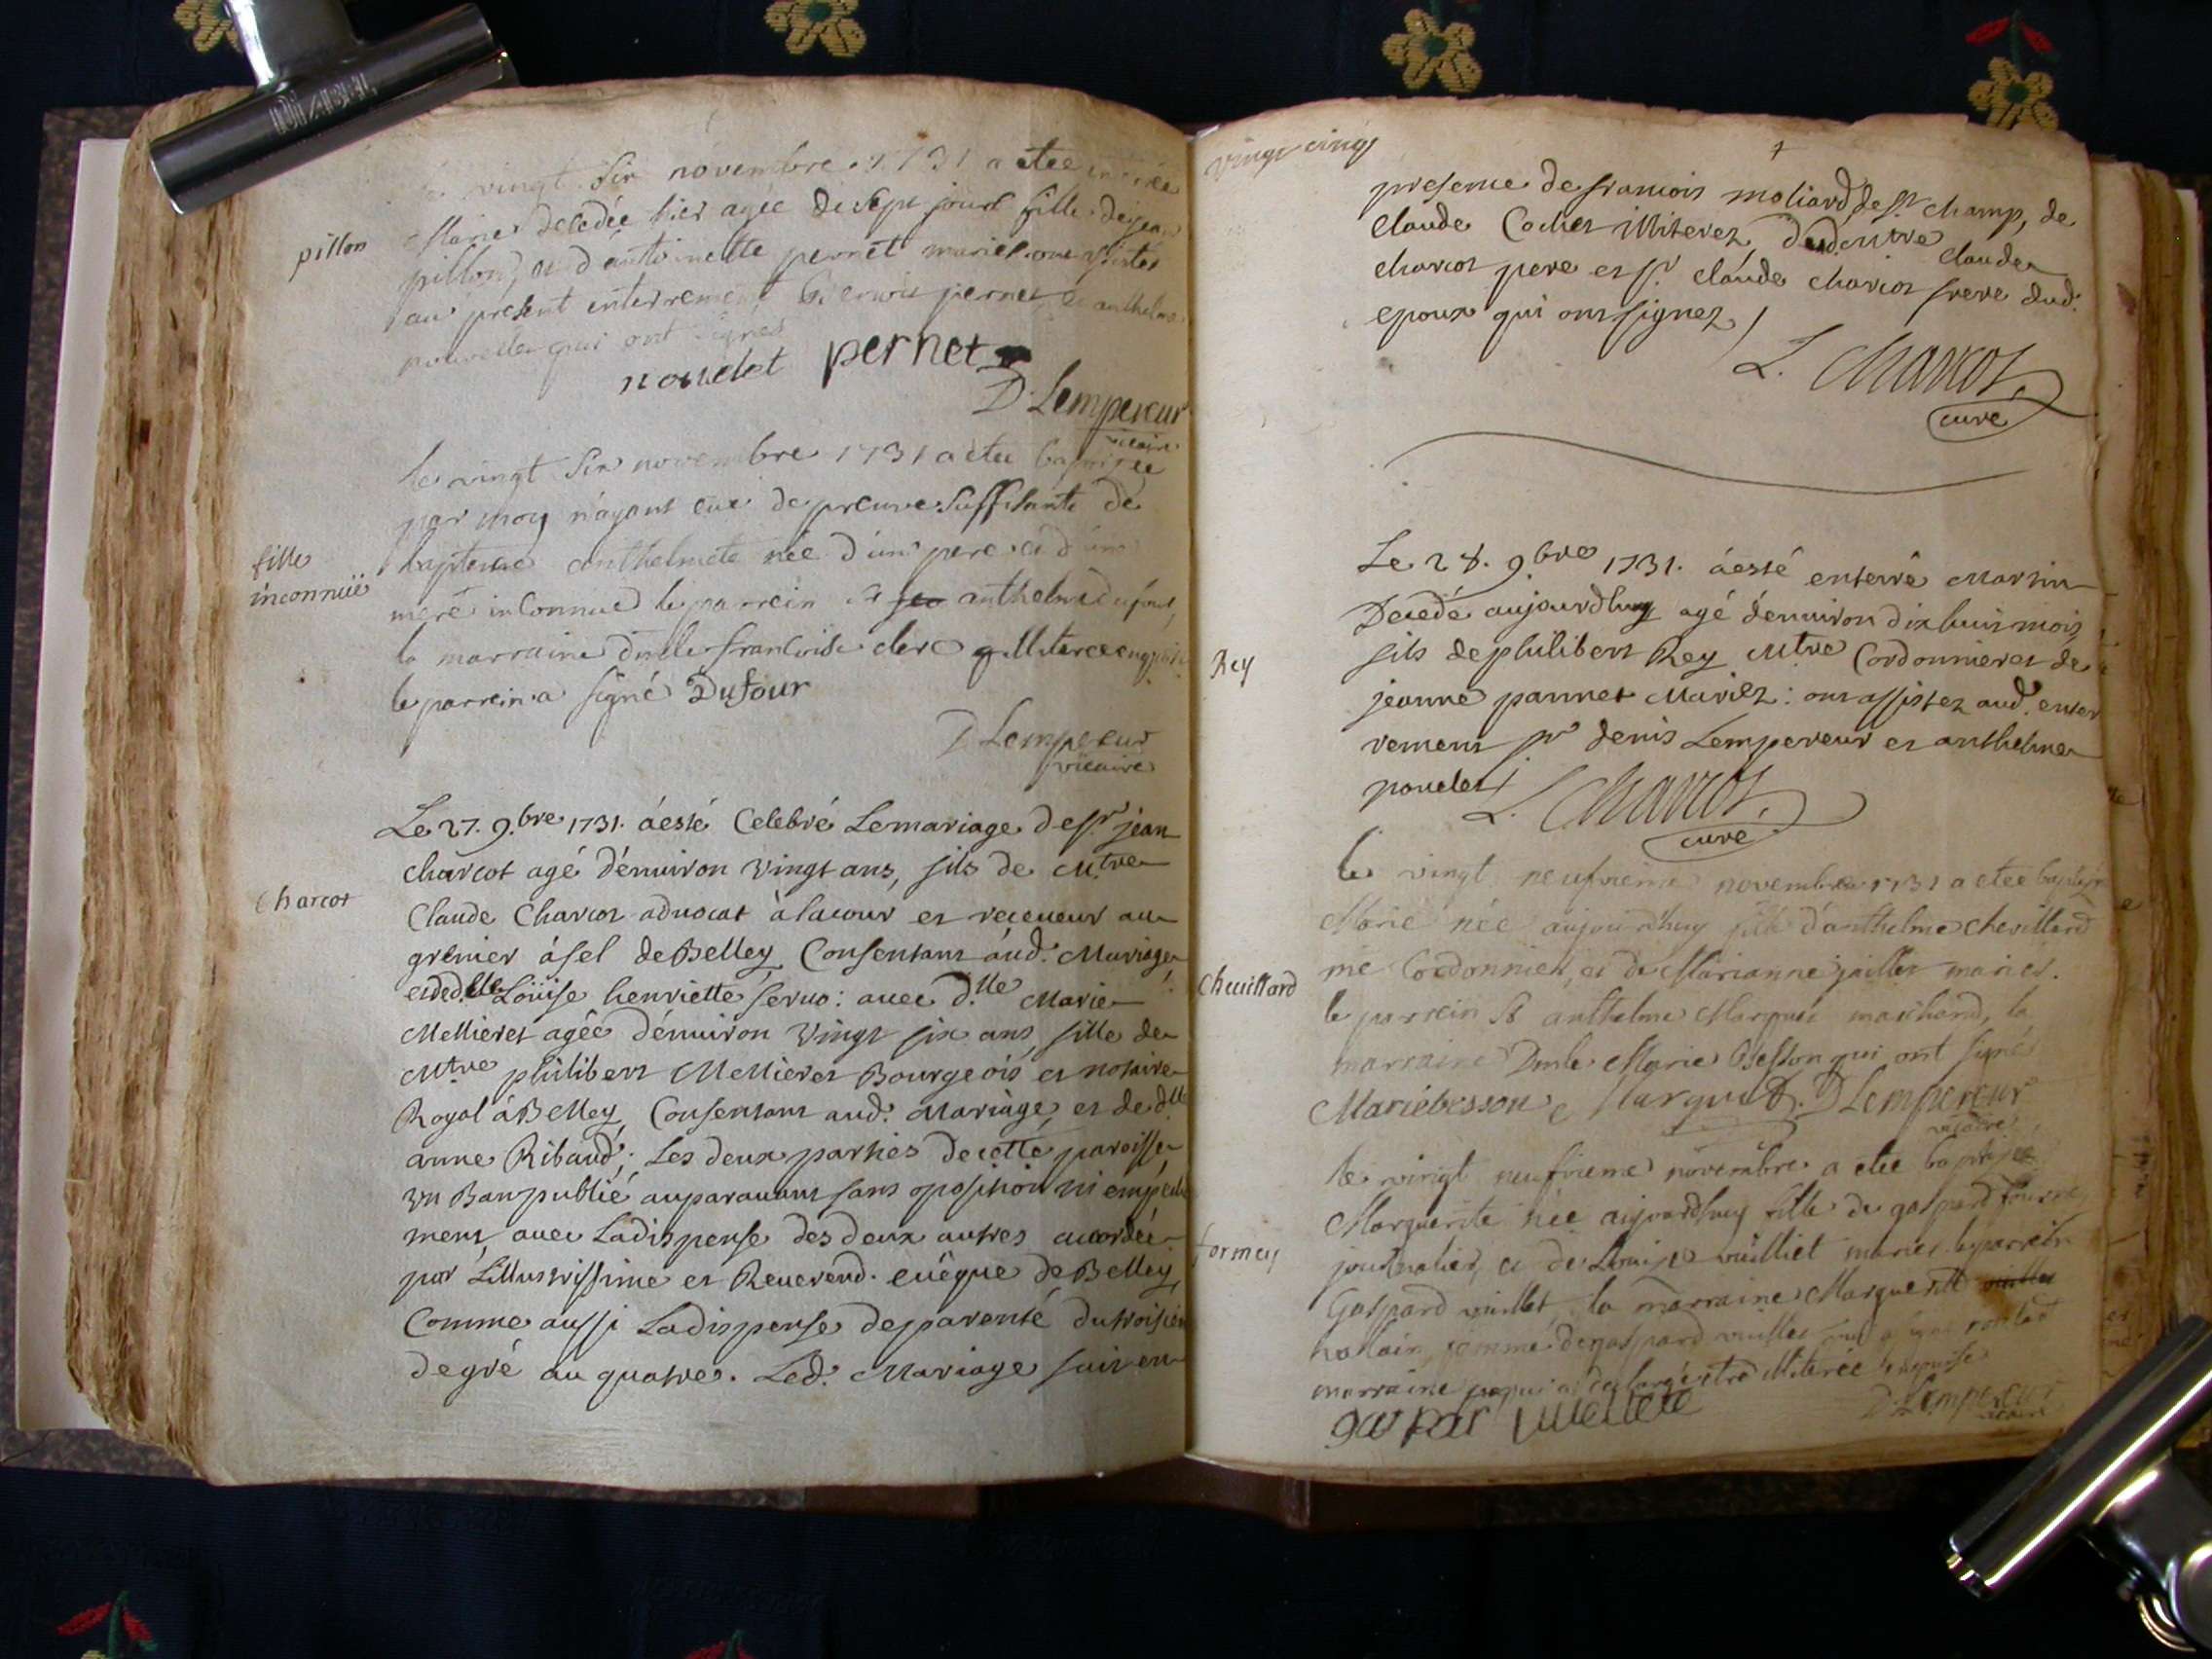 le vingt six novembre 1731 a etee
Marie decedée hier agée de sept jours fille de jean
pillon
pillon, et d'antoinette pernet mariés ont assistés
au present enterrement pernet et anthelme
qui ont signes
noudet pernet
D. Lempereur
vicaire
le vingt six novembre 1731 a etee baptisee
par moy n'ayant eue de preuve suffisante de
fille
inconnuë
bapteme anthelmete née d'un pere et d'une
mere inconnue le parrein anthelme dufour,
la marraine dmlle francoise clerc illiteree
le parrein a signé Dufour
D Lempereur
vicaire
Le 27. 9.bre 1731. áesté Celebré Lemariage de sr jean
charcot agé d'énuiron vingt ans, fils de Mtre
Charcot
Claude Charcot aduocat à lacour et receueur au
grenier ásel de Belley Consentant áud. Mariage
et de d.elle Loüise henriette seruo: auec d.lle Marie
Mellieret agée d'énuiron vingt six ans, fille de
Mtre philibert Mellieret Bourgeois et notaire
Royal á Belley, Consentant aud. Mariage, et de dlle
anne Ribaud; Les deux parties de cette paroisse
vn Ban publié auparauant sans oposition ni empeche
ment, auec Ladispense des deux autres accordée
par Lillustrissime et Reuerend. euêque de Belley,
Comme aussi Ladispense deparenté du troisiem
degré au quatre. Led. Mariage fait en
vingt cinq
presence de francois moliard de st champ, de
claude Cochet illiterez, dud. mtre claude
charcot pere et sr claude charcot frere dud.
epoux qui ont signez
L. Charcot
curé
Le 28. 9.bre 1731. áesté enterré Martin
Decedé aujourdhuy agé d'énuiron dix huit mois
Rey
fils de philibert Rey Mtre Cordonnier et de
jeanne pannet Mariez: ont assistez aud. enter
rement sr denis Lempereur et anthelme
poudet
L. Charcot
curé
le vingt neufvieme novembre 1731 a etee baptisée
Marie née aujourdhuy fille d'anthelme chevillard
Cheuillard
me Cordonnier, et de Marianne jaillet mariés.
le parrein Sr anthelme Marquis marchand, la
marraine Dmle Marie Besson qui ont signé
Mariebesson Marquis D Lempereur
vicaire
le vingt neufvieme novembre a etee baptisee
Marguerite née aujourdhuy fille de gaspard
formey
journalier, et de Louise vuilliet mariés le parrein
Gaspard vuillet, la marraine Marguerite
femme de gaspard vuillet
marraine illiterée
gaspar vuilliete
D. Lempereur
vicaire